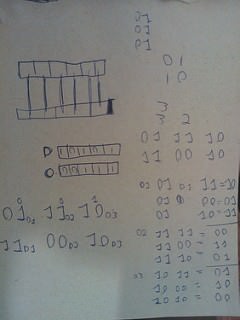 01
01
01
01
10
3
3 2
01 11 10
11 00 10
D 1 0 1 0 1
O 0 0 1 0 1
01 01 01 11=10
01 00=01
01 10=11
01 01 11 02 10 03
11 01 00 02 10 03
02 11 11 = 00
11 00 = 11
11 10 = 01
03 10 11 = 01
10 00 = 10
10 10 = 00